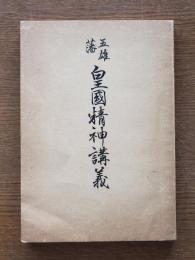 五雄藩
皇國精神講義